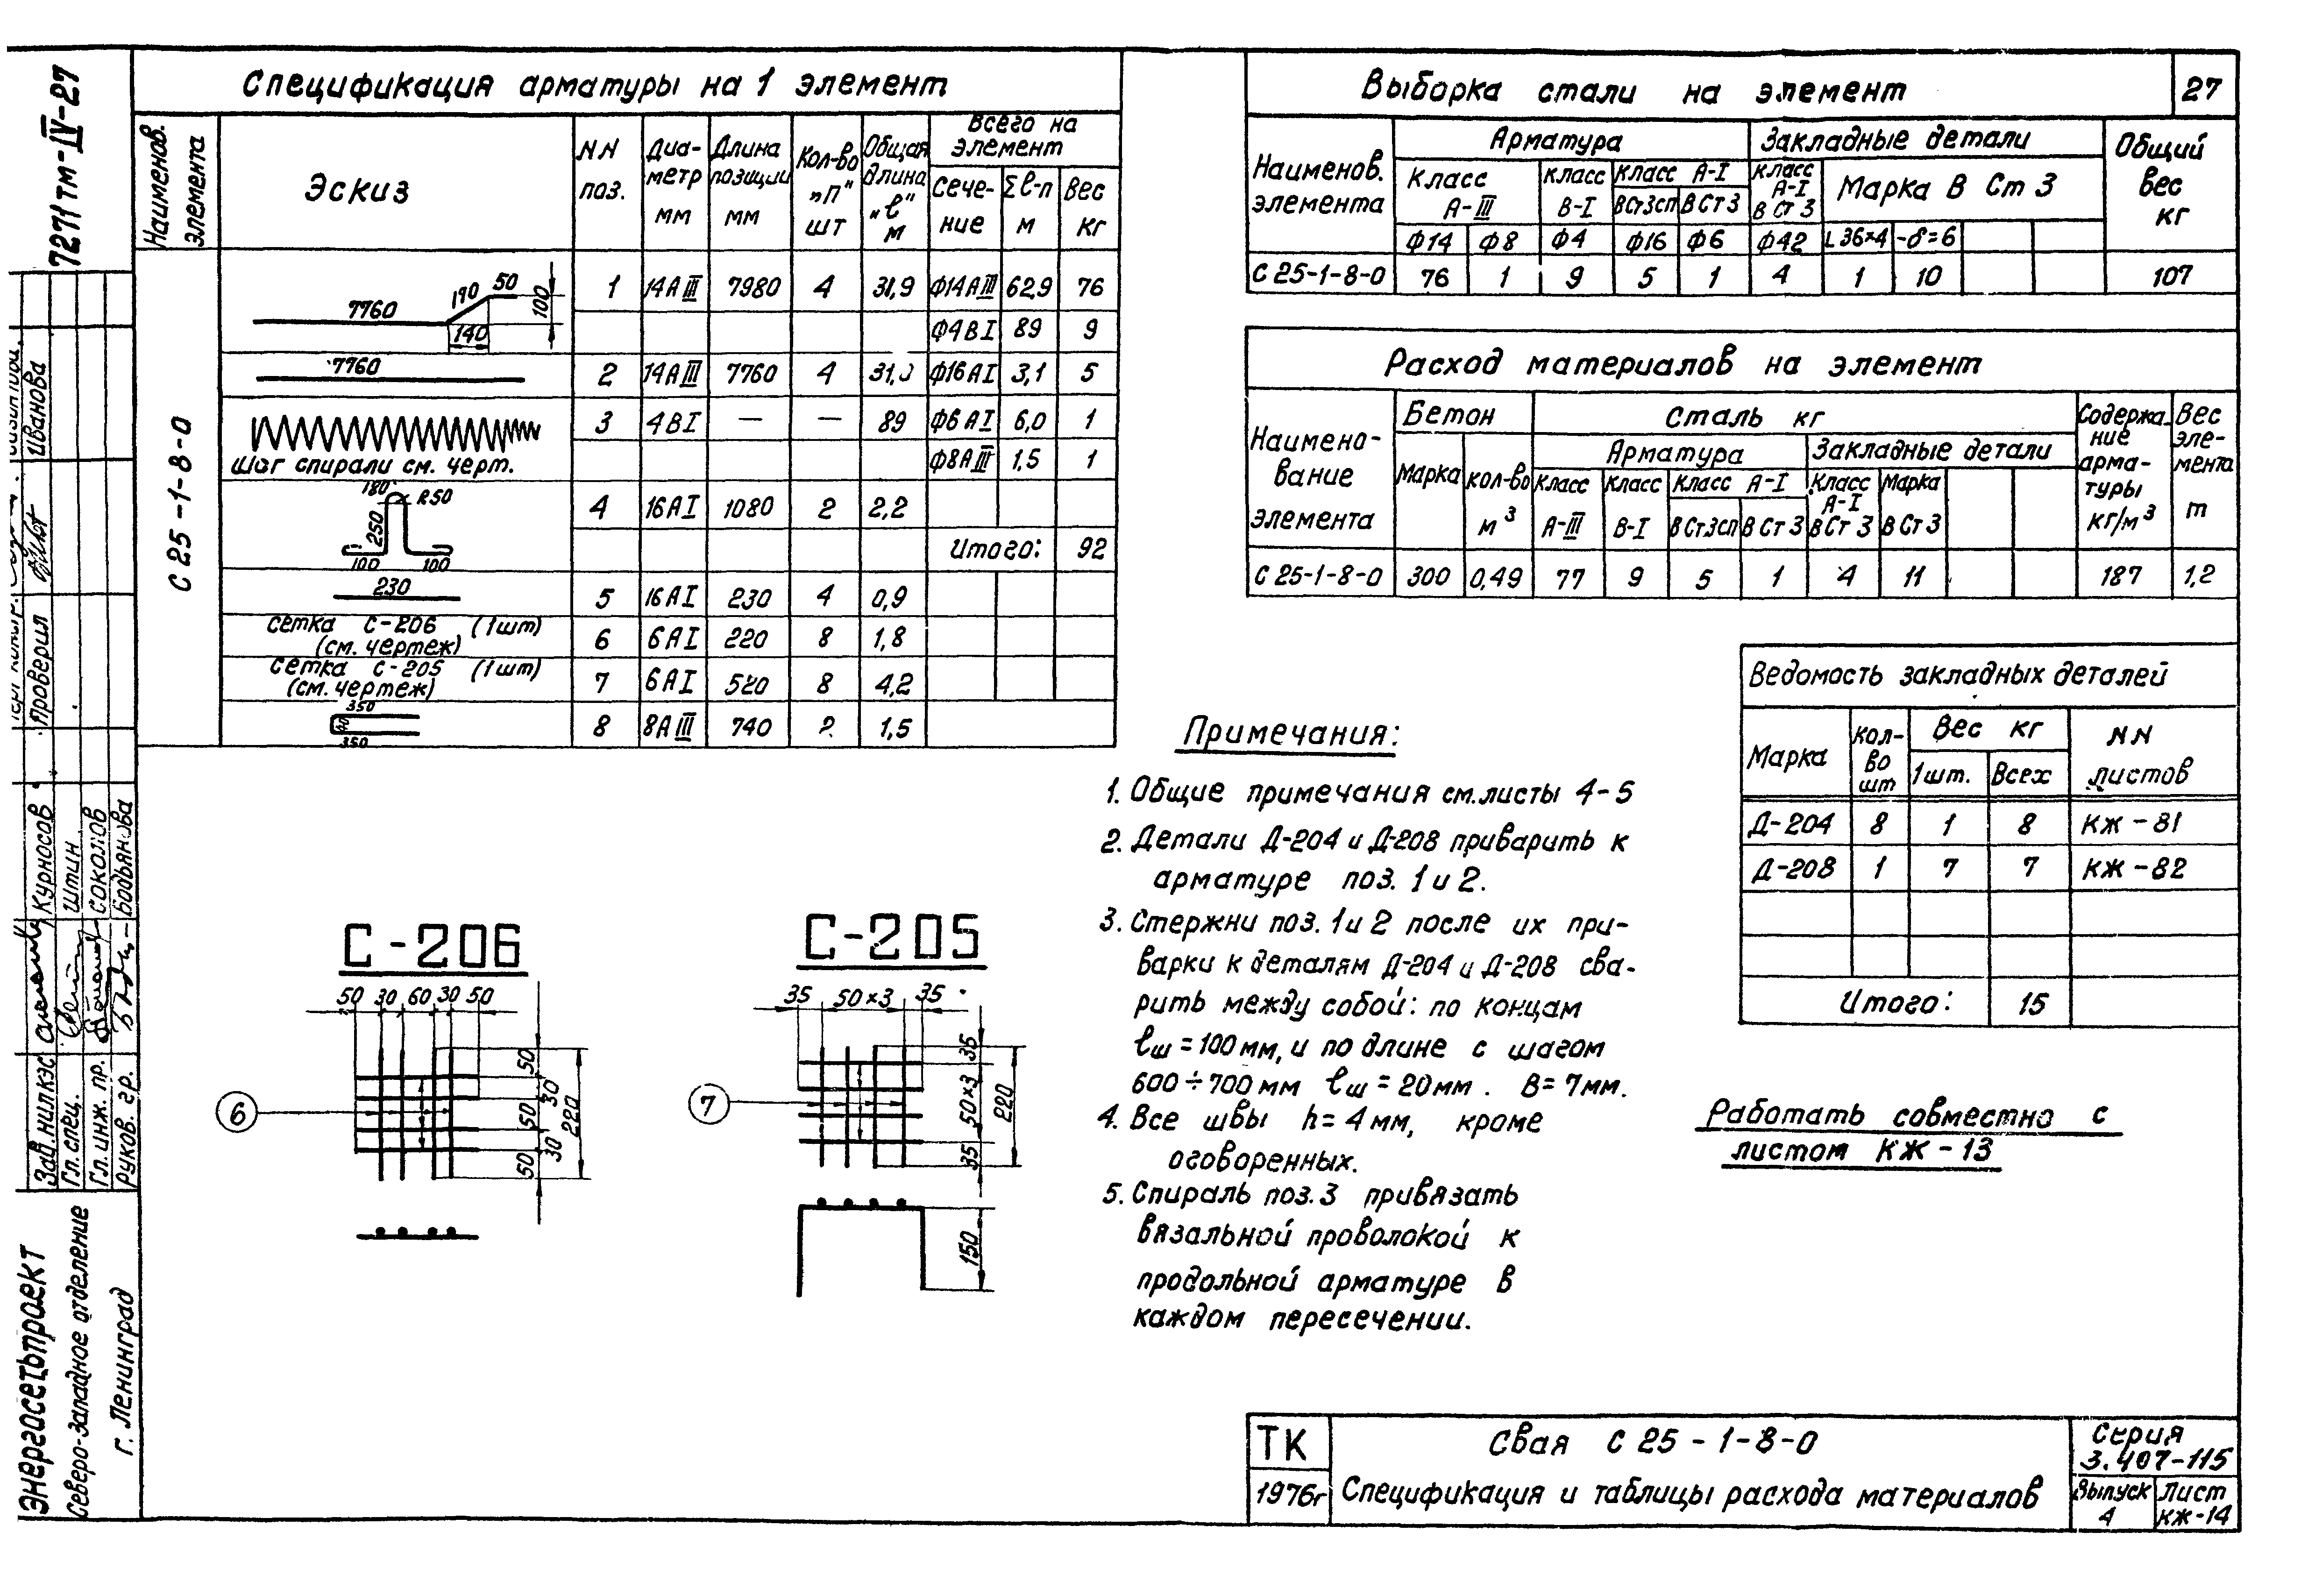 7271тм-IV-27
Спецификация арматуры на 1 элемент
Наименов. элемента
Эскиз
NN поз.
Диаметр мм
Длина позиции мм
Кол-во „п“ шт
Общая длина „ℓ“ м
Всего на элемент
Сечение
Σℓ-п м
Вес кг
С 25-1-8-0
7760 190 50 100 140
1 14АIII 7980 4 31,9 Ф14АIII 62,9 76
Ф4ВI 89 9
7760
2 14АIII 7760 4 Ф16АI 3,1 5
Шаг спирали см. черт.
3 4ВI — — 89 Ф6АI 6,0 1
Ф8АIII 1,5 1
180° R50 250 100 100
4 16АI 1080 2 2,2
Итого: 92
230
5 16АI 230 4 0,9
сетка С-206 (1шт)
(см. чертеж)
6 6АI 220 8 1,8
сетка С-205 (1шт)
(см. чертеж)
7 6АI 520 8 4,2
350 40 350
8 8АIII 740 2 1,5
Выборка стали на элемент
27
Наименов. элемента
Арматура
Закладные детали
Общий вес кг
Класс А-III
Класс В-I
Класс А-I
Класс А-I В Ст 3
Марка В Ст 3
ВСт3сп В Ст 3
Ф14 Ф8 Ф4 Ф16 Ф6 Ф42 L 36×4 -δ=6
С 25-1-8-0 76 1 9 5 1 4 1 10 107
Расход материалов на элемент
Наименование элемента
Бетон
Сталь кг
Содержание арматуры кг/м³
Вес элемента т
Арматура
Закладные детали
Марка кол-во м³
Класс А-III
Класс В-I
Класс А-I
ВСт3сп В Ст 3
Класс А-I В Ст 3
Марка В Ст 3
С 25-1-8-0 300 0,49 77 9 5 1 4 11 187 1,2
Ведомость закладных деталей
Марка
Кол-во шт
Вес кг
1шт. Всех
NN листов
Д-204 8 1 8 КЖ-81
Д-208 1 7 7 КЖ-82
Итого: 15
Примечания:
1. Общие примечания см. листы 4-5
2. Детали Д-204 и Д-208 приварить к
арматуре поз. 1 и 2.
3. Стержни поз. 1 и 2 после их при-
варки к деталям Д-204 и Д-208 сва-
рить между собой: по концам
ℓш = 100 мм, и по длине с шагом
600÷700 мм ℓш = 20 мм. В = 7 мм.
4. Все швы h = 4 мм, кроме
оговоренных.
5. Спираль поз. 3 привязать
вязальной проволокой к
продольной арматуре в
каждом пересечении.
Работать совместно с
листом КЖ-13
С-206
50 30 60 30 50
50 30 50 30 50 220
6
С-205
35 50×3 35
35 50×3 35 220
7
150
Проверил Иванова
Зав. НИЛКЭС Курносов
Гл. спец. Штин
Гл. инж. пр. Соколов
Руков. гр. Бодьянова
Энергосетьпроект
Северо-Западное отделение
г. Ленинград
ТК
1976г
Свая С 25-1-8-0
Спецификация и таблицы расхода материалов
Серия
3.407-115
Выпуск 4
Лист КЖ-14